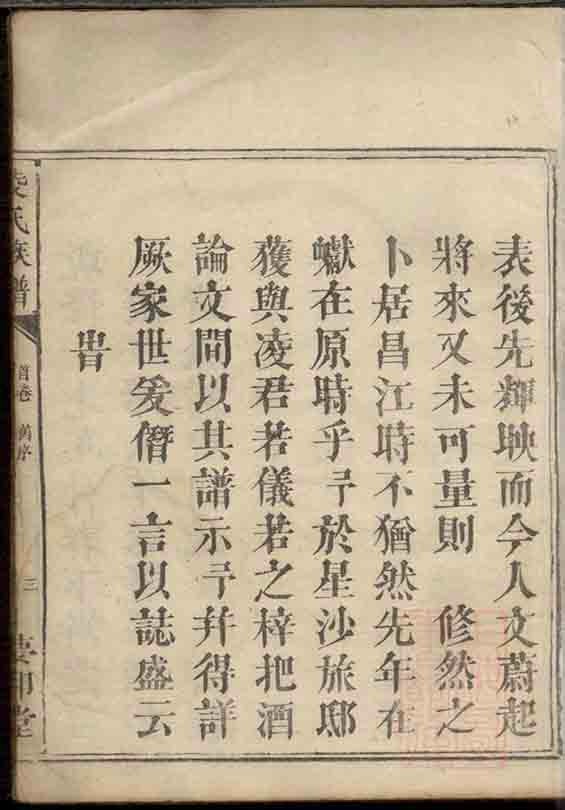 表後先輝映而今人文蔚起
將來又未可量則　修然之
卜居昌江時不猶然先年在
巘在原時乎予於星沙旅邸
獲與凌君若儀若之梓把酒
論文間以其譜示予幷得詳
厥家世爰僭一言以誌盛云
旹
凌氏族譜
首卷　舊序
三